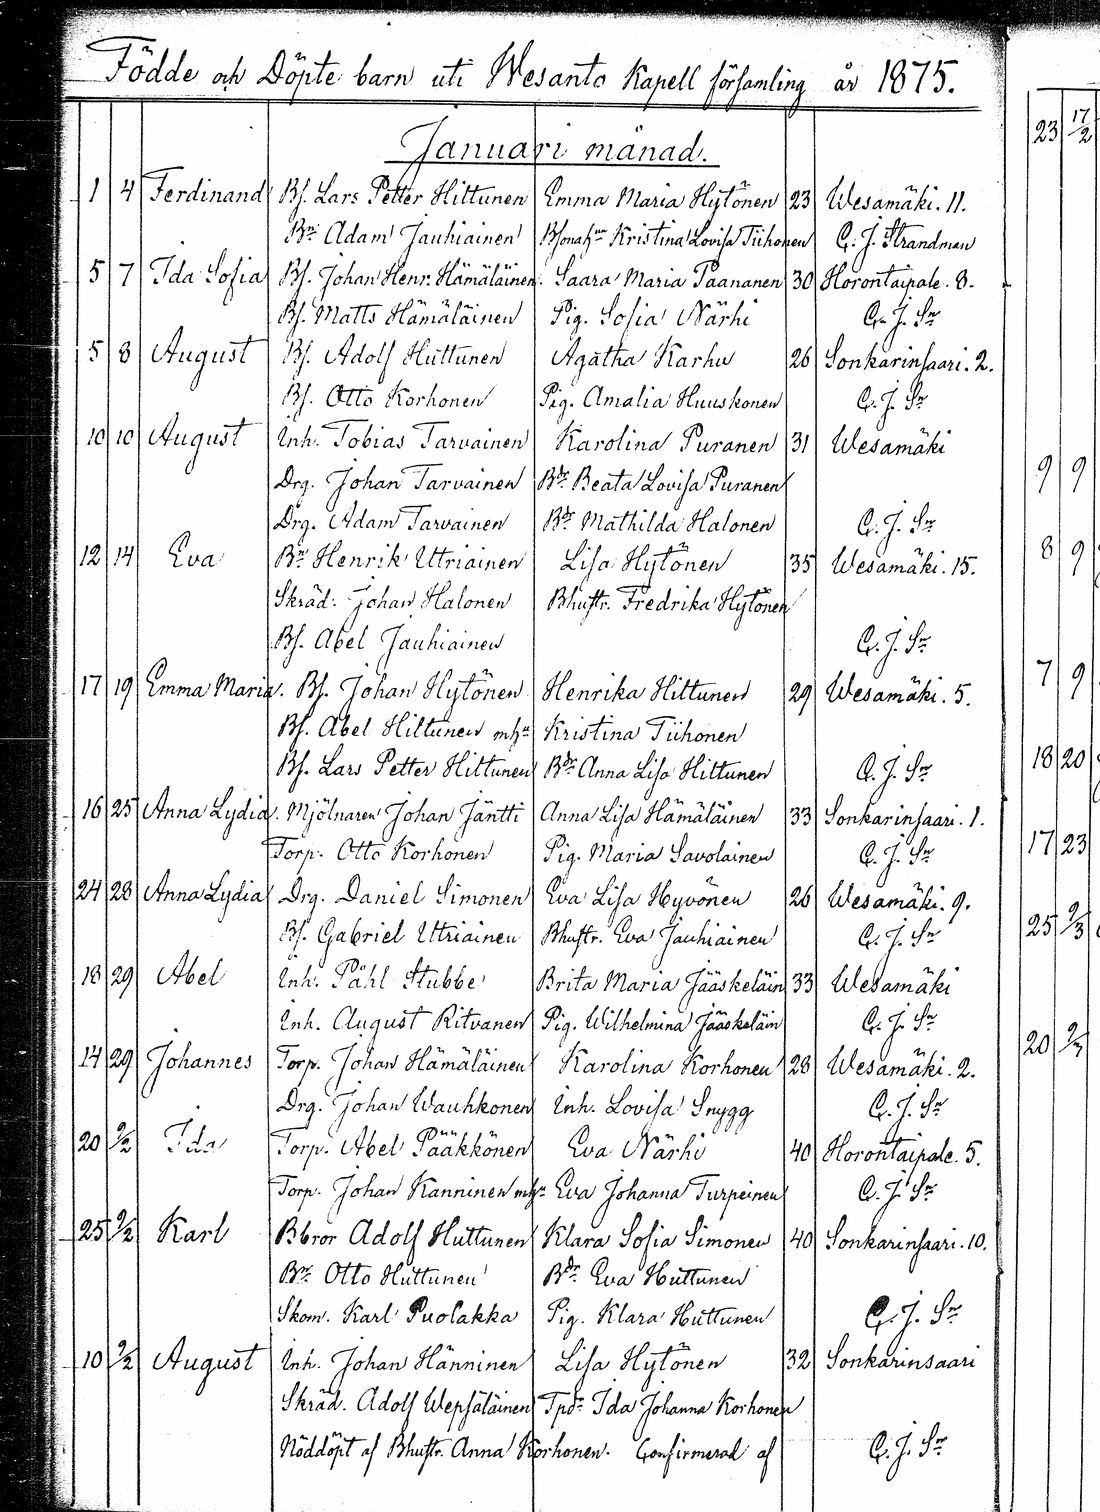 Födde och Döpte barn uti Wesanto Kapell församling år 1875.
Januari månad.
1 4 Ferdinand Bs. Lars Petter Hiltunen Emma Maria Hytönen 23 Wesamäki. 11.
Bn Adam Jauhiainen Kristina Lovisa Tiihonen C. J. Strandman
5 7 Ida Sofia Bs. Johan Henr. Hämäläinen. Saara Maria Paananen 30 Horontaipale. 8.
Bs. Matts Hämäläinen Pig. Sofia Närhi C. J. Sn
5 8 August Bs. Adolf Huttunen Agatha Karhu 26 Sonkarinsaari. 2.
Bs. Otto Korhonen Pig. Amalia Huuskonen C. J. Sn
10 10 August Inh. Tobias Tarvainen Karolina Puranen 31 Wesamäki
Drg. Johan Tarvainen Bdr Beata Lovisa Puranen
Drg. Adam Tarvainen Bdr Mathilda Halonen C. J. Sn
12 14 Eva Bn Henrik Utriainen Lisa Hytönen 35 Wesamäki. 15.
Skräd. Johan Halonen Bhustr. Fredrika Hytönen
Bs. Abel Jauhiainen C. J. Sn
17 19 Emma Maria. Bs. Johan Hytönen Henrika Hiltunen 29 Wesamäki. 5.
Bs. Abel Hiltunen mhu Kristina Tiihonen
Bs. Lars Petter Hiltunen Bdr Anna Lisa Hiltunen C. J. Sn
16 25 Anna Lydia. Mjölnaren Johan Jäntti Anna Lisa Hämäläinen 33 Sonkarinsaari. 1.
Torp. Otto Korhonen Pig. Maria Savolainen C. J. Sn
24 28 Anna Lydia Drg. Daniel Simonen Eva Lisa Hyvönen 26 Wesamäki. 9.
Bs. Gabriel Utriainen Bhustr. Eva Jauhiainen C. J. Sn
18 29 Abel Inh. Påhl Stubbe Brita Maria Jääskeläin 33 Wesamäki
Inh. August Ritvanen Pig. Wilhelmina Jääskeläin C. J. Sn
14 29 Johannes Torp. Johan Hämäläinen Karolina Korhonen 28 Wesamäki. 2.
Drg. Johan Wauhkonen Inh. Lovisa Snygg C. J. Sn
20 2/2 Ida Torp. Abel Pääkkönen Eva Närhi 40 Horontaipale. 5.
Torp. Johan Kanninen mhu Eva Johanna Turpeinen C. J. Sn
25 2/2 Karl Bbror Adolf Huttunen Klara Sofia Simonen 40 Sonkarinsaari. 10.
Bn Otto Huttunen Bdr Eva Huttunen
Skom. Karl Puolakka Pig. Klara Huttunen C. J. Sn
10 2/2 August Inh. Johan Hänninen Lisa Hytönen 32 Sonkarinsaari
Skräd. Adolf Wepsäläinen Tpdr Ida Johanna Korhonen
Nöddöpt af Bhustr. Anna Korhonen. Confirmerad af C. J. Sn
23 17/2
9 9
8 9
7 9
18 20
17 23
25 2/3
20